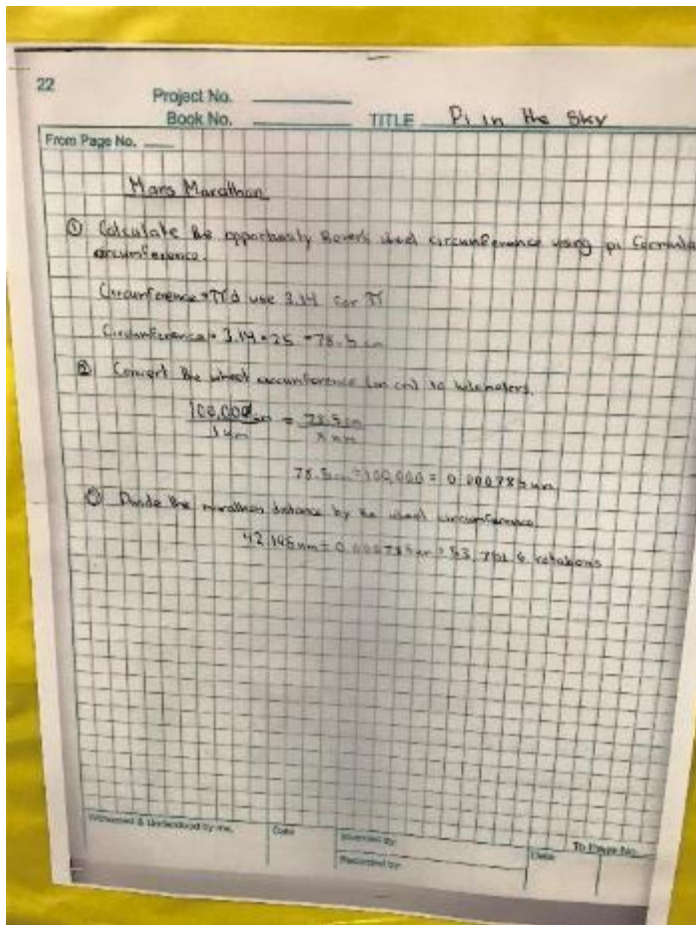 22
Project No.
Book No.
TITLE Pi in the Sky
From Page No.
Mars Marathon
① Calculate the opportunity Rover's wheel circumference using pi formula
circumference.
Circumference = πd use 3.14 for π
Circumference = 3.14 × 25 = 78.5 cm
② Convert the wheel circumference (in cm) to kilometers.
100,000 cm = 78.5 cm
1 km x km
78.5 cm ÷ 100,000 = 0.000785 km
③ Divide the marathon distance by the wheel circumference.
km ÷ 0.000785 km = rotations
Witnessed & Understood by me,
Date
Invented by
Date
To Page No.
Recorded by